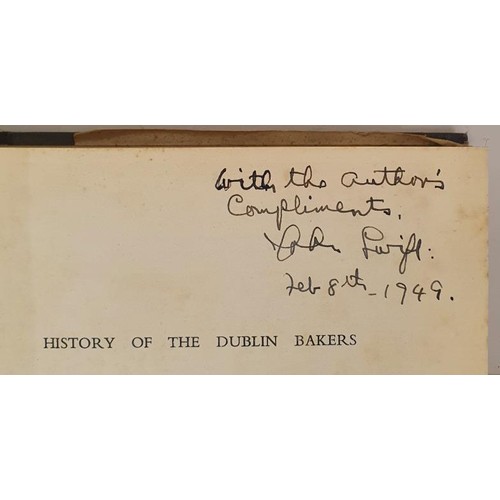 with the author's
Compliments.
John Swift:
Feb 8th - 1949.
HISTORY OF THE DUBLIN BAKERS